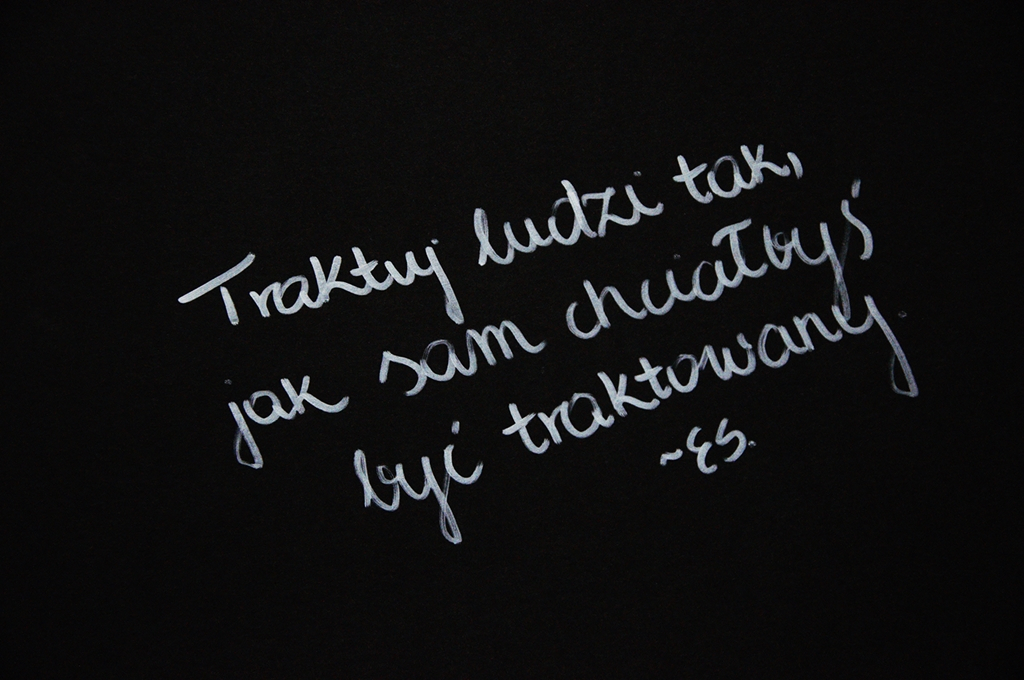 Traktuj ludzi tak,
jak sam chciałbyś
być traktowany.
~ES.